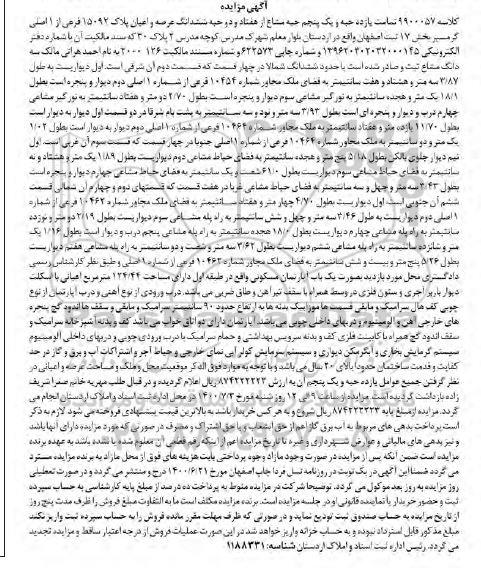 آگهی مزایده
کلاسه ۹۹۰۰۰۵۷ تمامت یازده حبه و یک پنجم حبه مشاع از هفتاد و دو حبه ششدانگ عرصه و اعیان پلاک ۱۵۰۹۲ فرعی از ۱ اصلی
گرمسیر بخش ۱۷ ثبت اصفهان واقع در اردستان بلوار معلم شهرک مدرس کوچه مدرس ۲ پلاک ۳۰ که سند مالکیت آن با شماره دفتر
الکترونیکی ۱۳۹۶۲۰۳۰۲۰۳۲۰۰۰۱۴۵ و شماره چاپی ۶۲۲۵۷۳ و شماره مستند مالکیت ۱۲۶ ۲۰۰۰ به نام احمد هراتی مالک سه
دانگ مشاع ثبت و صادر شده است با حدود ششدانگ شمالا در چهار قسمت که قسمت دوم آن شرقی است. اول دیواریست به طول
۳/۸۷ سه متر و هشتاد و هفت سانتیمتر به فضای ملک مجاور شماره ۱۰۴۵۴ فرعی از شماره ۱ اصلی دوم دیوار و پنجره است بطول
۱/۱۸ یک متر و هجده سانتیمتر به نورگیر مشاعی سوم دیوار و پنجره است بطول ۲/۷۰ دو متر و هفتاد سانتیمتر به نورگیر مشاعی
چهارم درب و دیوار و پنجره ای است بطول ۳/۹۳ سه متر و نود و سه سانتیمتر به پشت بام شرقا در دو قسمت اول دیوار به دیوار است
بطول ۱۱/۷۰ یازده متر و هفتاد سانتیمتر به ملک مجاور شماره ۱۰۴۶۲ فرعی از شماره ۱ اصلی دوم دیوار به دیوار است بطول ۱/۰۲
یک متر و دو سانتیمتر به ملک مجاور شماره ۱۰۴۶۴ فرعی از شماره ۱ اصلی جنوبا در چهار قسمت که قسمت سوم آن غربی است. اول
نیم دیوار جلوی بالکن بطول ۵/۱۸ پنج متر و هجده سانتیمتر به فضای حیاط مشاعی دوم دیواریست بطول ۱/۸۹ یک متر و هشتاد و نه
سانتیمتر به فضای حیاط مشاعی سوم دیواریست بطول ۰/۶۱ شصت و یک سانتیمتر به فضای حیاط مشاعی چهارم دیوار و پنجره است
بطول ۳/۴۳ سه متر و چهل و سه سانتیمتر به فضای حیاط مشاعی غربا در هفت قسمت که قسمتهای دوم و چهارم آن شمالی قسمت
ششم آن جنوبی است. اول دیواریست بطول ۴/۷۰ چهار متر و هفتاد سانتیمتر به فضای ملک مجاور شماره ۱۰۴۶۲ فرعی از شماره
۱ اصلی دوم دیواریست به طول ۳/۴۶ سه متر و چهل و شش سانتیمتر به راه پله مشاعی سوم دیواریست بطول ۲/۱۹ دو متر و نوزده
سانتیمتر به راه پله مشاعی چهارم دیواریست بطول ۰/۱۸ هجده سانتیمتر به راه پله مشاعی پنجم درب و دیوار است بطول ۱/۱۶ یک
متر و شانزده سانتیمتر به راه پله مشاعی ششم دیواریست بطول ۳/۶۲ سه متر و شصت و دو سانتیمتر به راه پله مشاعی هفتم دیواریست
بطول ۵/۲۶ پنج متر و بیست و شش سانتیمتر به فضای ملک مجاور شماره ۱۰۴۶۲ فرعی از شماره ۱ اصلی و طبق نظر کارشناس رسمی
دادگستری محل مورد بازدید بصورت یک باب آپارتمان مسکونی واقع در طبقه اول دارای مساحت ۱۲۴/۴۴ مترمربع اعیانی با اسکلت
دیوار باربر آجری و ستون فلزی در وسط همراه با سقف تیرآهن و طاق ضربی می باشد. درب ورودی از نوع آهنی و درب آپارتمان از نوع
چوبی کف هال سرامیک و مابقی قسمت ها موزاییک بدنه ها به ارتفاع حدود ۹۰ سانتیمتر سرامیک و مابقی و سقف ها اندود گچ پنجره
های خارجی آهنی و آلومینیوم و دربهای داخلی چوبی می باشد. آپارتمان دارای دو اتاق خواب می باشد کف و بدنه آشپزخانه سرامیک و
سقف اندود گچ همراه با کابینت فلزی کف و بدنه سرویس بهداشتی و حمام سرامیک با درب ورودی چوبی و دربهای داخلی آلومینیوم
سیستم گرمایش بخاری و آبگرمکن دیواری و سیستم سرمایش کولر آبی نمای خارجی و حیاط آجر و اشتراکات آب و برق و گاز در حد
کفایت و قدمت ساختمان حدودا بالای ۲۰ سال می باشد و با توجه به موارد فوق الذکر موقعیت محل وملک و مساحت عرصه و اعیانی در
نظر گرفتن جمیع عوامل یازده حبه و یک پنجم آن به ارزش ۸۷۴۲۲۲۲۲۳ ریال اعلام گردیده و در قبال طلب مهریه خانم صفرا شریف
زاده بازداشت گردیده است. مزایده از ساعت ۹ الی ۱۲ روز شنبه مورخ ۱۴۰۰/۷/۳ در محل اداره ثبت اسناد و املاک اردستان انجام می
گردد. مزایده از مبلغ پایه ۸۷۴۲۲۲۲۲۳ ریال شروع و به هر کس خریدار باشد به بالاترین قیمت پیشنهادی فروخته می شود. لازم به ذکر
است پرداخت بدهی های مربوط به آب برق گاز اعم از حق انشعاب و یا حق اشتراک و مصرف در صورتی که مورد مزایده دارای آنها باشد
و نیز بدهی های مالیاتی و عوارض شهرداری و غیره تا تاریخ مزایده اعم از اینکه رقم قطعی آن معلوم شده یا نشده باشد به عهده برنده
مزایده است ضمن آنکه پس از مزایده در صورت وجود مازاد وجوه پرداختی بابت هزینه های فوق از محل مازاد به برنده مزایده مسترد
می گردد ضمنا این آگهی در یک نوبت در روزنامه نسل فردا چاپ اصفهان مورخ ۱۴۰۰/۶/۲۱ درج و منتشر می گردد و در صورت تعطیلی
روز مزایده به روز بعد موکول می گردد. توضیحا شرکت در مزایده منوط به پرداخت ده درصد از مبلغ پایه کارشناسی به حساب سپرده
ثبت و حضور خریدار یا نماینده قانونی او در جلسه مزایده است. برنده مزایده مکلف است مابه التفاوت مبلغ فروش را ظرف مدت پنج روز
از تاریخ مزایده به حساب صندوق ثبت تودیع نماید و در صورتی که ظرف مهلت مقرر مانده فروش را به حساب سپرده ثبت واریز نکند
مبلغ مذکور قابل استرداد نبوده و به حساب خزانه واریز خواهد شد در این صورت عملیات فروش از درجه اعتبار ساقط و مزایده تجدید
می گردد. رئیس اداره ثبت اسناد و املاک اردستان شناسه: ۱۱۸۸۳۳۱